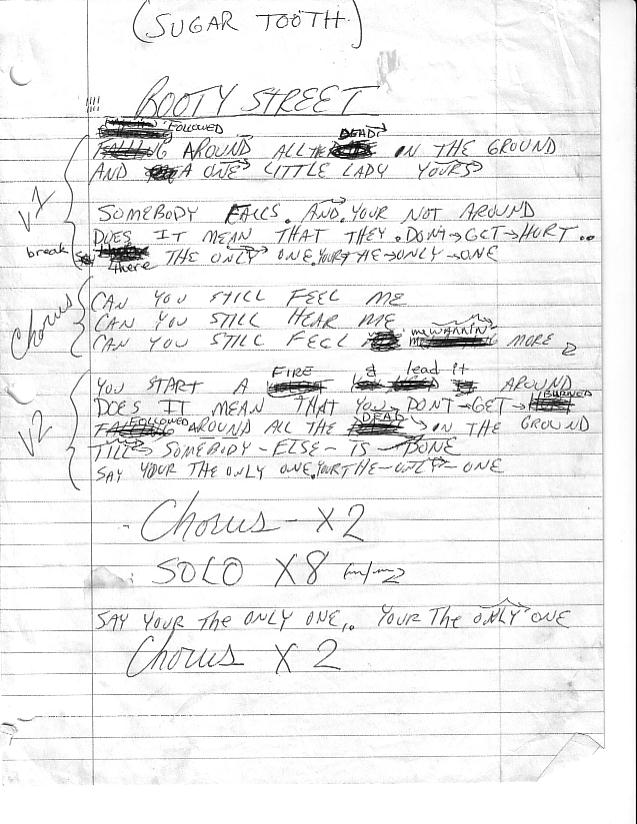 (SUGAR TOOTH)
BOOTY STREET
FOLLOWED DEAD
FALLING AROUND ALL THE IN THE GROUND
AND A ONE LITTLE LADY YOURS
V1
SOMEBODY FALLS. AND. YOUR NOT AROUND
DOES IT MEAN THAT THEY. DON'T GET HURT..
break THE ONLY ONE. YOUR THE ONLY ONE
there
Chorus
CAN YOU STILL FEEL ME
CAN YOU STILL HEAR ME
CAN YOU STILL FEEL me MORE
FIRE & lead it
YOU START A AROUND
BURNED
DOES IT MEAN THAT YOU DON'T GET
V2
FOLLOWED DEAD
FALLING AROUND ALL THE IN THE GROUND
TILL SOMEBODY - ELSE - IS - DONE
SAY YOUR THE ONLY ONE. YOUR THE - ONLY - ONE
- Chorus - X2
SOLO X8
SAY YOUR The ONLY ONE,. YOUR The ONLY ONE
Chorus X 2